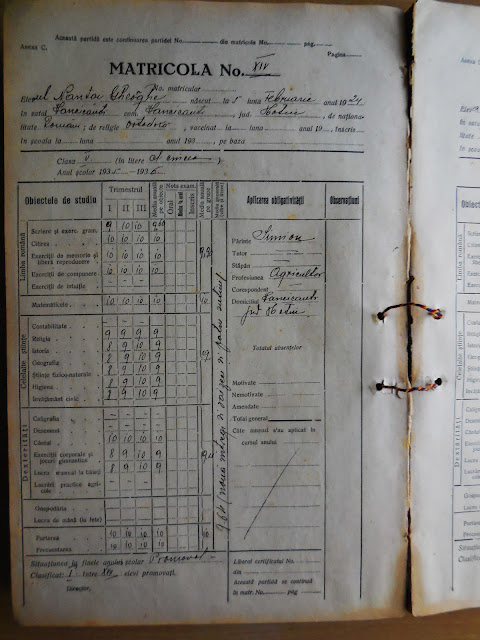 Anexa C.
Această partidă este continuarea partidei No. din matricola No. pag.
Pagina
MATRICOLA No. XIV
No. matricular
Elevul Nantoi Gheorghe născut la 5 luna Februarie anul 1924
în satul com. jud. Hotin, de naționa-
litate Română; de religie ortodoxă, vaccinat la luna anul 19, înscris
în școala la luna anul 193, pe baza
Clasa V (în litere a cincea).
Anul școlar 1935-1936
Obiectele de studiu
Trimestrul
I II III
Media anuală pe obiecte
Nota exam.
Oral
Înscris
Media anuală pe grupe
Aplicarea obligativității
Observațiuni
Limba română
Scriere și exerc. gram. 9 10 10 9,60
Citirea 10 10 10
Exerciții de memorie și liberă reproducere 10 10 10 10
Exerciții de compunere 10 10 10 10
Exerciții de intuiție
Matematicele 10 10 10 10 10
Celelalte științe
Contabilitate
Religia 9 9 9 9
Istoria 8 9 10 9
Geografia 8 9 10 9
Științe fizico-naturale 8 9 10 9
Higiena 8 9 10 9
Învățământ civic 8 9 10 9
Dexterități
Caligrafia
Desemnul
Cântul 10 10 10 10
Exerciții corporale și jocuri gimnastice 8 9 10 9
Lucru manual la băieți 8 9 10 9
Lucrări practice agricole
Gospodăria
Lucru de mână (la fete)
Purtarea 10 10 10 10 10
Frecventarea 10 10 10 10
Părinte Simion
Tutor
Stăpân
Profesiunea Agricultor
Corespondent
Domiciliul
jud Hotin
Totalul absențelor
Motivate
Nemotivate
Amendate
Total general
Câte amenzi s'au aplicat în cursul anului
Situațiunea la finele anului școlar Promovat
Clasificat I între XIV elevi promovați.
Director,
Liberat certificatul No.
din
Această partidă se continuă
în matr. No. pag